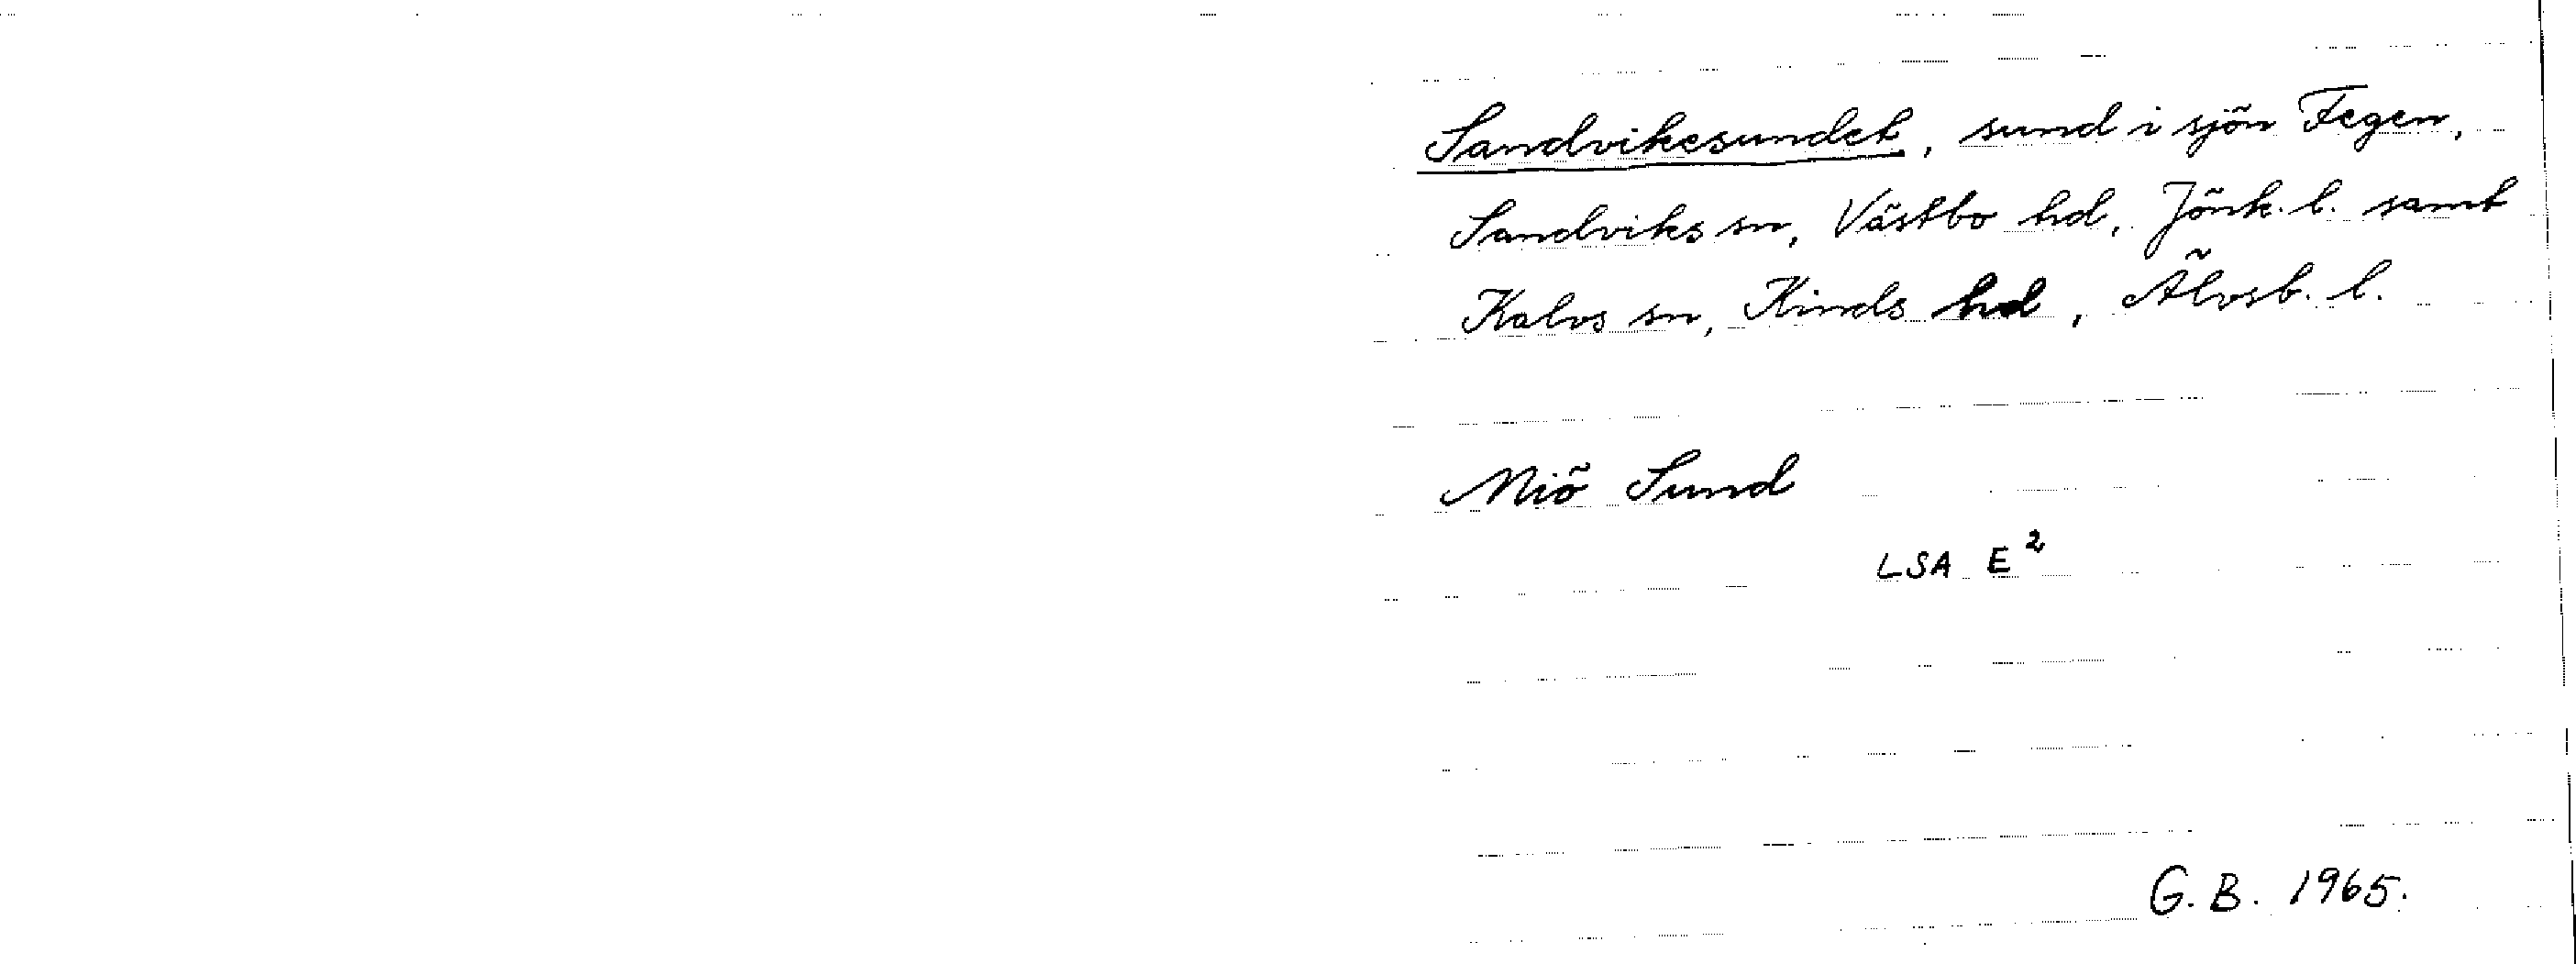 Sandvikesundet, sund i sjön Fegen,
Sandviks sn, Västbo hd, Jönk. l. samt
Kalvs sn, Kinds hd, Älvsb. l.
Niö Sund
LSA E²
G. B. 1965.